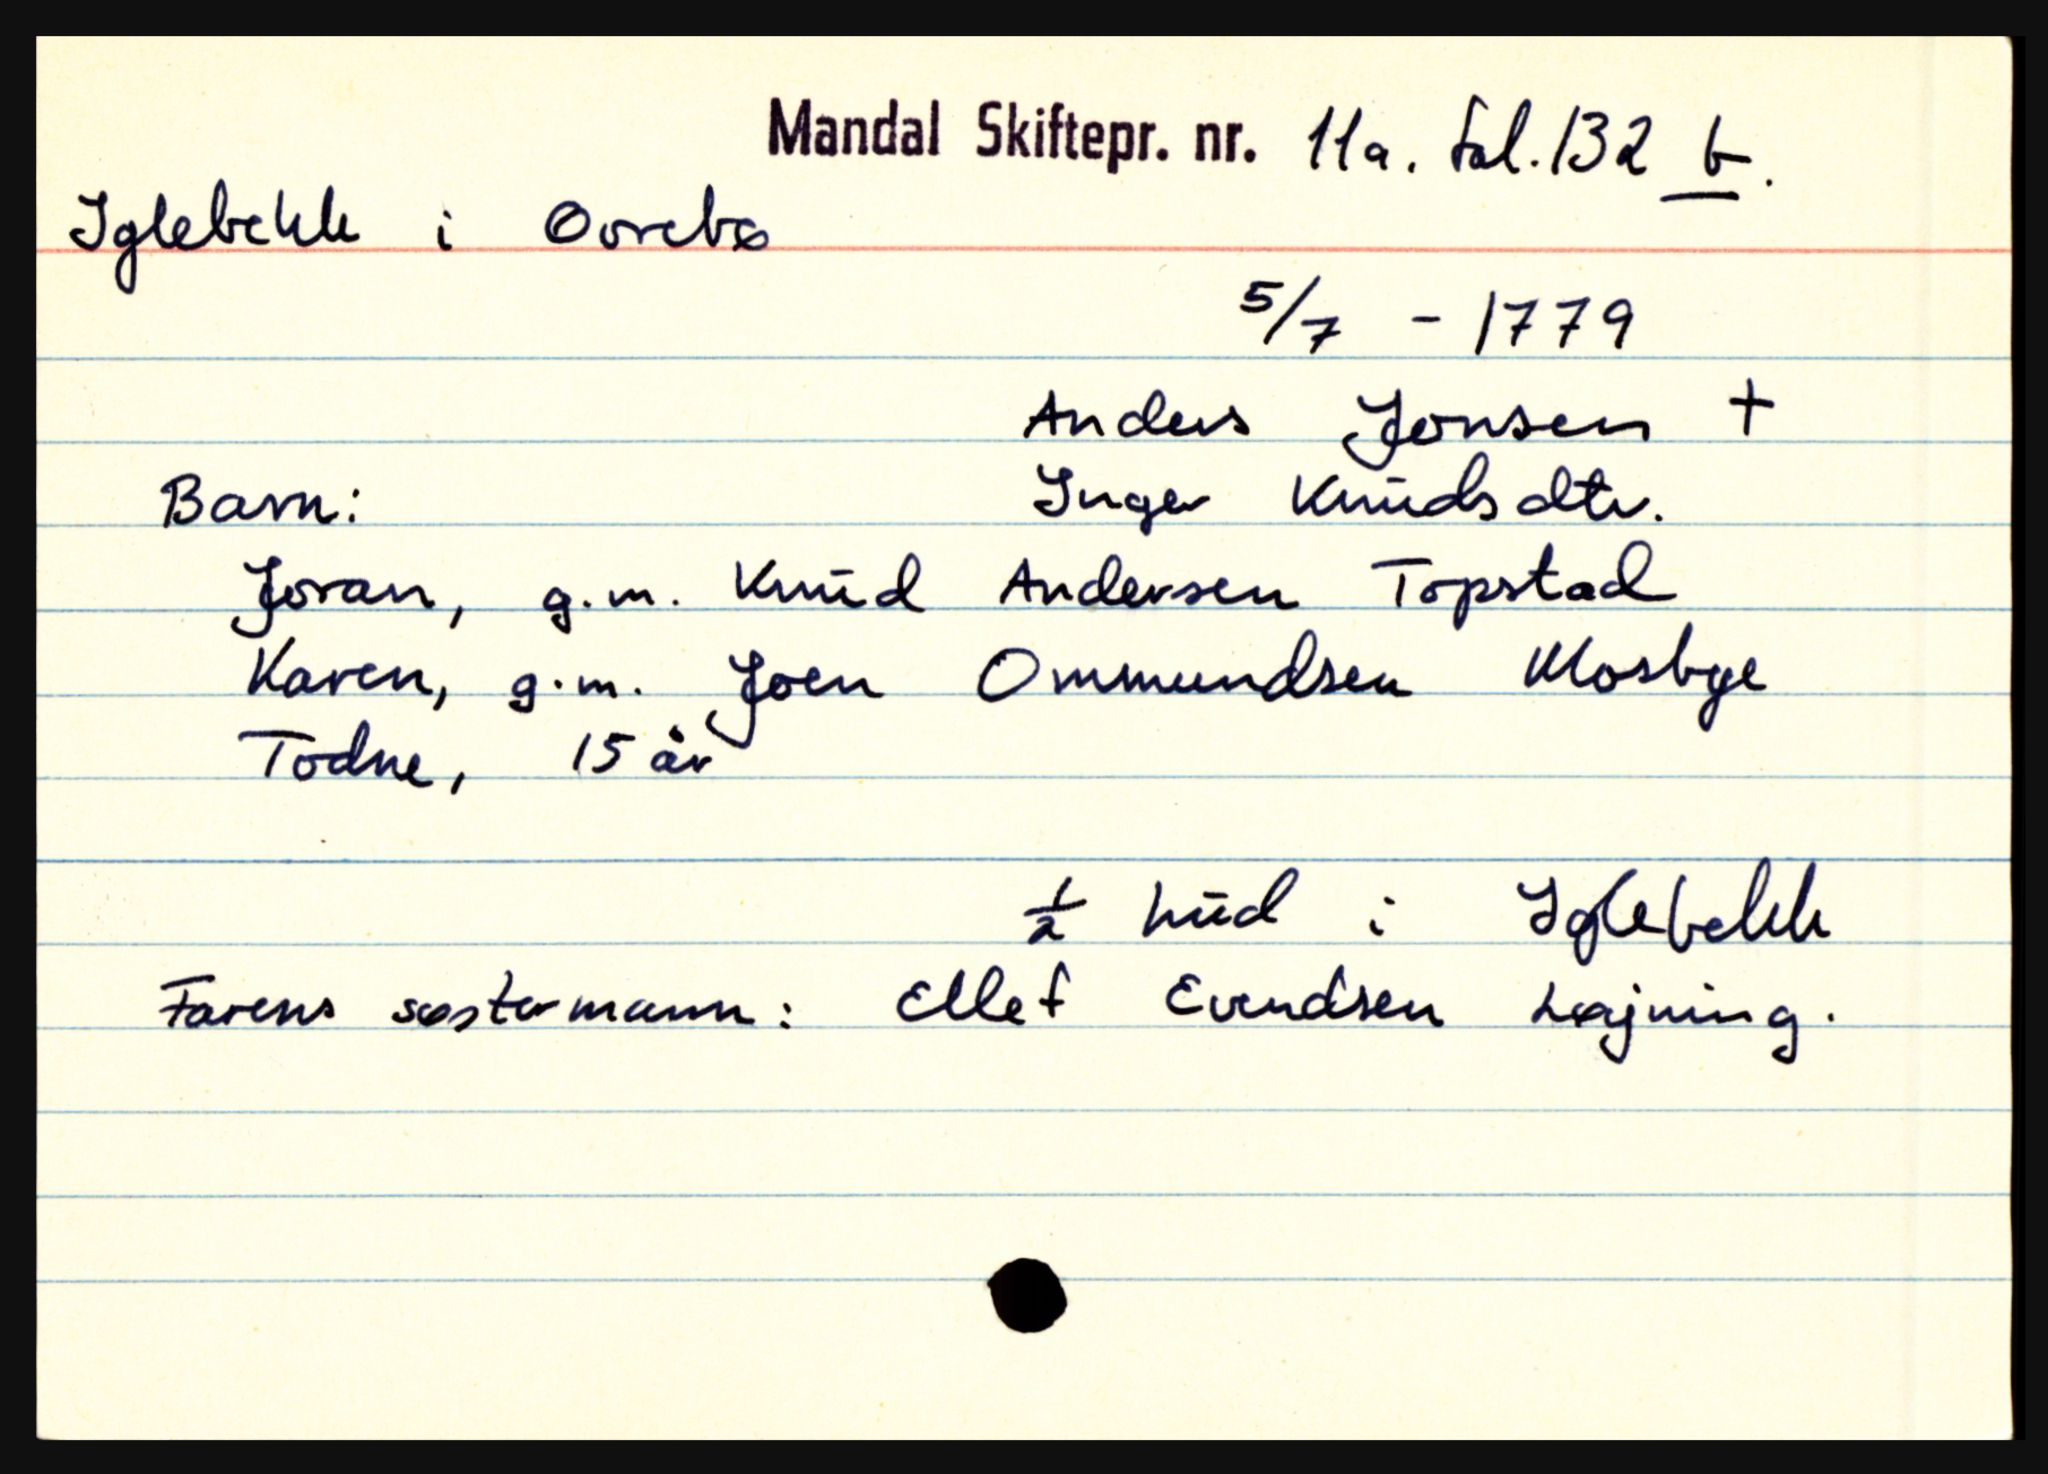 Mandal Skiftepr. nr. 11a. fol. 132 b.
Iglebekk i Øvrebø
5/7 - 1779
Anders Jonsen +
Barn: Inger Knudsdtr.
Joran, g.m. Knud Andersen Topstad
Karen, g.m. Joen Ommundsen Mosbye
Todne, 15 år
1/2 hud i Iglebekk
Farens søstermann: Ellef Evendsen Løjning.